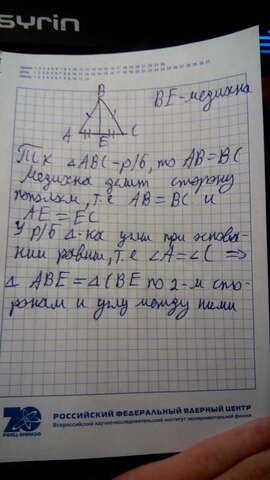 syrin
B
BE - медиана
A E C
Т.к △ABC - р/б, то AB = BC
Медиана делит сторону
пополам, т.е AB = BC и
AE = EC
У р/б △-ка углы при основа-
нии равны, т.е ∠A = ∠C ⇒
△ ABE = △CBE по 2-м сто-
ронам и углу между ними
70
РФЯЦ-ВНИИЭФ
РОССИЙСКИЙ ФЕДЕРАЛЬНЫЙ ЯДЕРНЫЙ ЦЕНТР
Всероссийский научно-исследовательский институт экспериментальной физики